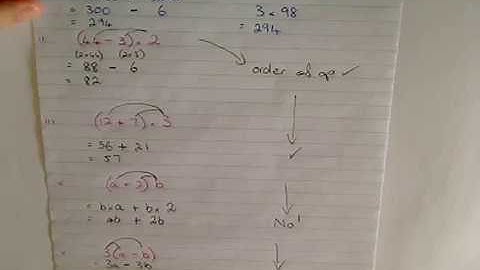 = 300 - 6 3 × 98
= 294 = 294
(44 - 3) × 2
(2×44) (2×3)
= 88 - 6 order of op ✓
= 82
iii) (12 + 7) × 3
= 36 + 21
= 57 ✓
(a + 2) b
= b×a + b×2
= ab + 2b No!
3(a - b)
= 3a - 3b